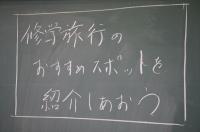 修学旅行の
おすすめスポットを
紹介しあおう